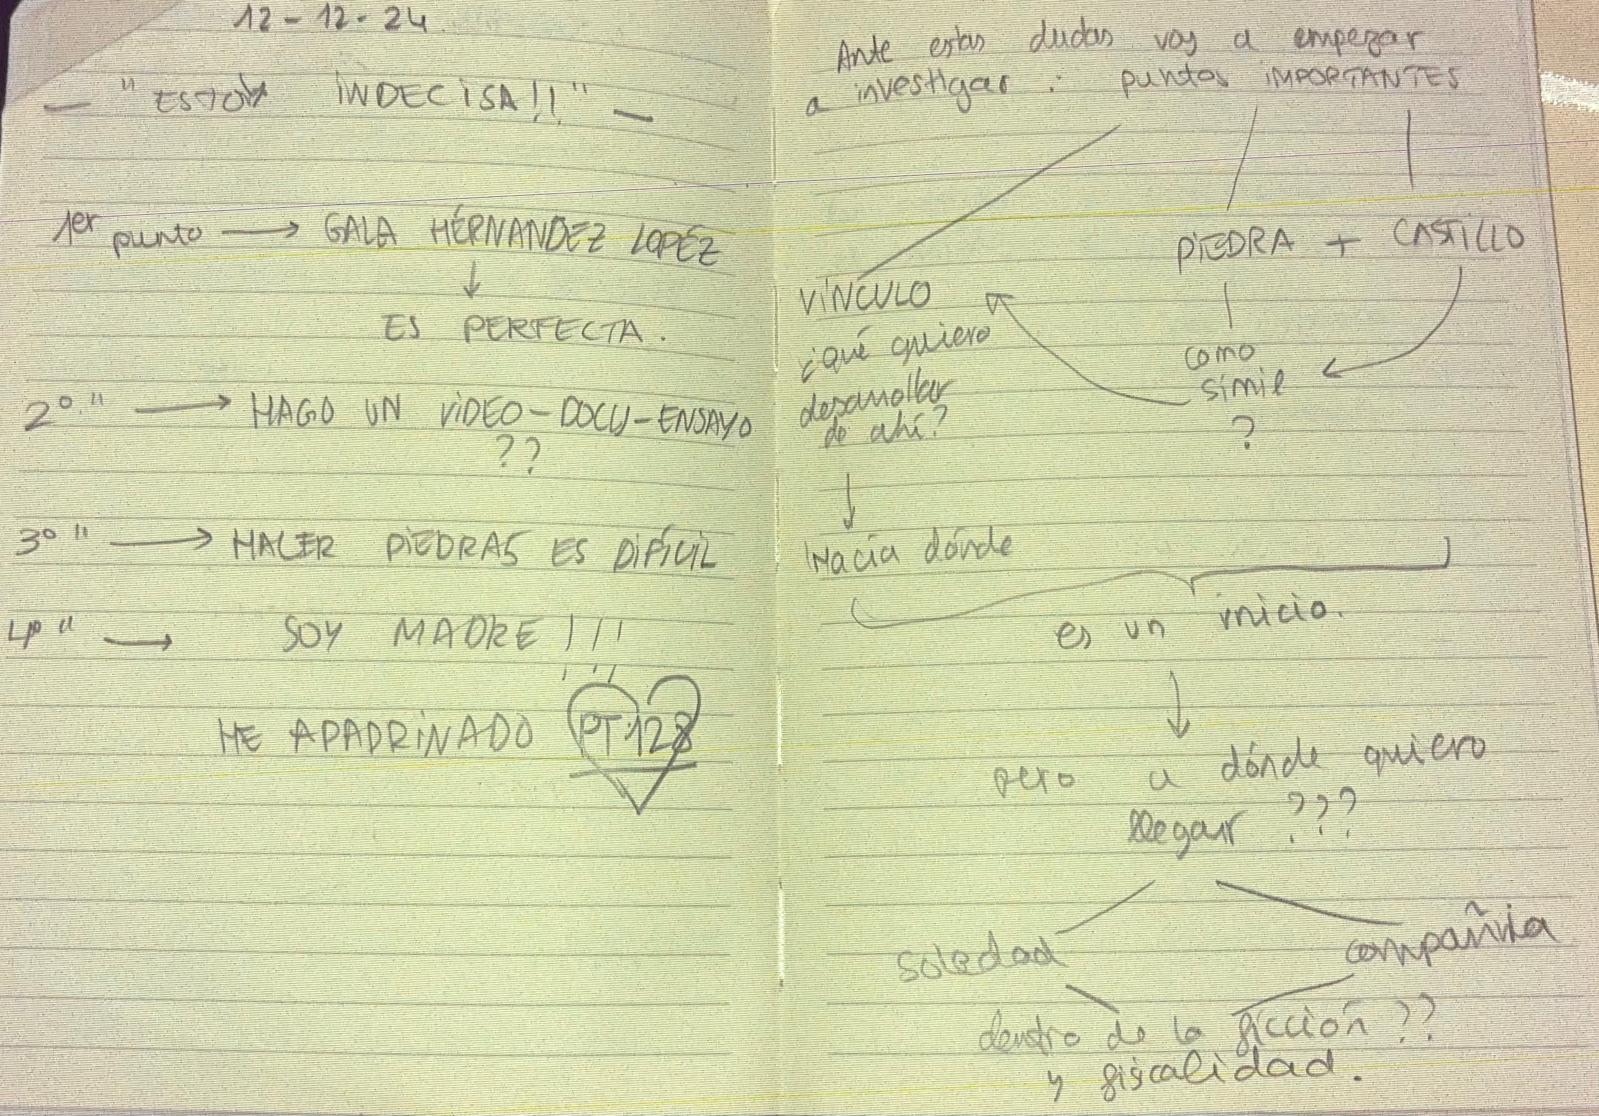 12-12-24
— "ESTOY INDECISA!!" —
1er punto → GALA HÉRNANDEZ LOPÉZ
↓
ES PERFECTA.
2º " → HAGO UN VIDEO-DOCU-ENSAYO
??
3º " → HACER PIEDRAS ES DIFÍCIL
4º " → SOY MADRE !!!
HE APADRINADO PT128
Ante estas dudas voy a empezar
a investigar : puntos IMPORTANTES
PIEDRA + CASTILLO
VÍNCULO
¿qué quiero
desarrollar
de ahí?
como
símil
?
↓
Hacía dónde
es un inicio.
↓
pero a dónde quiero
llegar ???
soledad
compañía
dentro de la ficción ??
y fiscalidad.